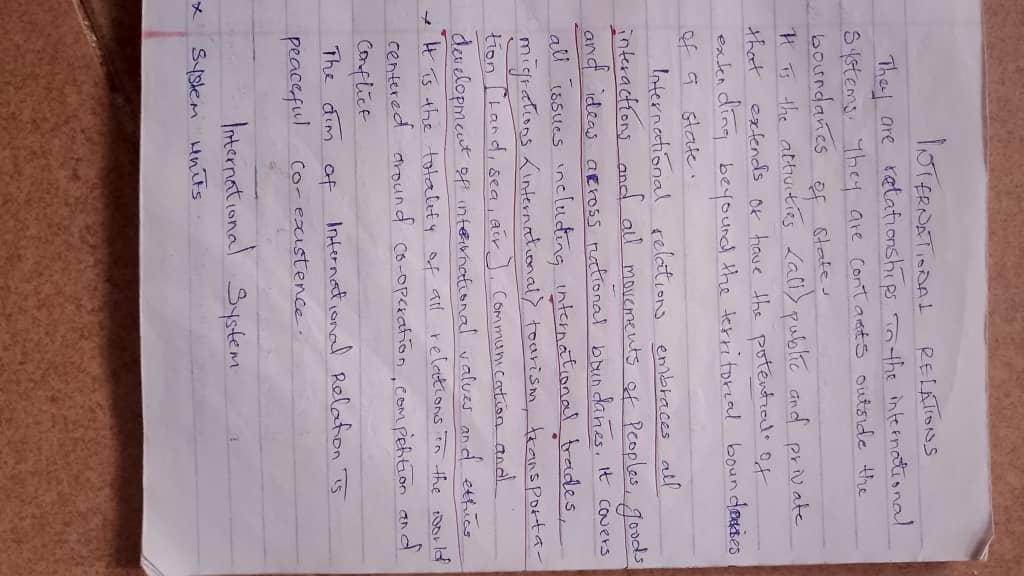 INTERNATIONAL RELATIONS
They are relationships in the international
Systems. They are contacts outside the
boundaries of state.
It is the activities <all> public and private
that extends or have the potential of
extending beyound the territoral boundries
of a state.
International relations embraces all
interactions and all movements of Peoples, goods
and ideas across national boundries. it covers
all issues including international trades,
migrations <international> tourism, transporta-
tion [Land, sea, air] communication and
development of international values and ethics
x It is the totality of all relations in the world
centered around co-operation, competition and
Conflict
The aim of International Relation is
peaceful co-existence.
International System
x System units.